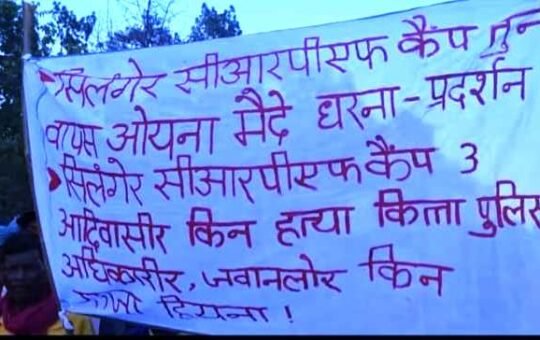 सिलंगेर सीआरपीएफ कैंप तुन
वापस ओयना मैदे धरना-प्रदर्शन
सिलंगेर सीआरपीएफ कैंप 3
आदिवासीर किन हत्या कित्ता पुलिस
अधिकारीर, जवानलोर किन
हियना !